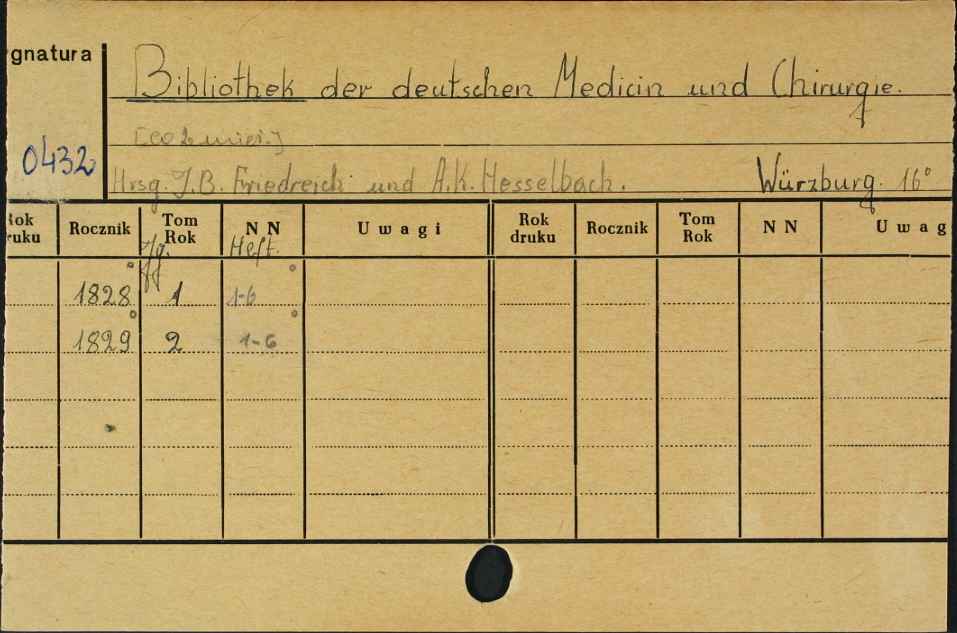 gnatura
Bibliothek der deutschen Medicin und Chirurgie.
[co 2 mies.]
0432
Hrsg. J.B. Friedreich und A.K. Hesselbach. Würzburg. 16°
Rok druku Rocznik Tom Rok NN Uwagi Rok druku Rocznik Tom Rok NN Uwag
Jg. Heft.
1828 1 1-6
1829 2 1-6